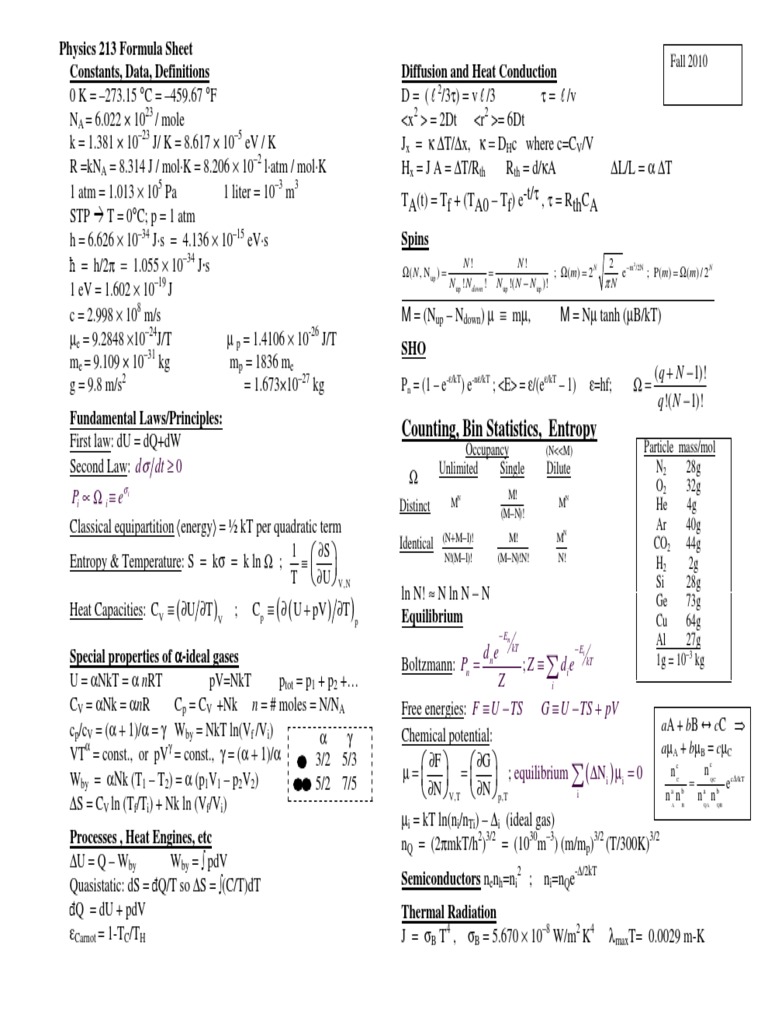 Physics 213 Formula Sheet
Constants, Data, Definitions
0 K = –273.15 ⁰C = –459.67 ⁰F
N_A = 6.022 × 10²³ / mole
k = 1.381 × 10⁻²³ J/ K = 8.617 × 10⁻⁵ eV / K
R =kN_A = 8.314 J / mol·K = 8.206 × 10⁻² l·atm / mol·K
1 atm = 1.013 × 10⁵ Pa 1 liter = 10⁻³ m³
STP → T = 0⁰C; p = 1 atm
h = 6.626 × 10⁻³⁴ J·s = 4.136 × 10⁻¹⁵ eV·s
ħ = h/2π = 1.055 × 10⁻³⁴ J·s
1 eV = 1.602 × 10⁻¹⁹ J
c = 2.998 × 10⁸ m/s
μ_e = 9.2848 ×10⁻²⁴J/T μ_p = 1.4106 × 10⁻²⁶ J/T
m_e = 9.109 × 10⁻³¹ kg m_p = 1836 m_e
g = 9.8 m/s² = 1.673×10⁻²⁷ kg
Fundamental Laws/Principles:
First law: dU = dQ+dW
Second Law: dσ/dt ≥ 0
P_i ∝ Ω_i ≡ e^{σ_i}
Classical equipartition ⟨energy⟩ = ½ kT per quadratic term
Entropy & Temperature: S = kσ = k ln Ω ; 1/T ≡ (∂S/∂U)_{V,N}
Heat Capacities: C_V ≡ (∂U/∂T)_V ; C_p ≡ (∂(U + pV)/∂T)_p
Special properties of α-ideal gases
U = αNkT = α nRT pV=NkT p_tot = p₁ + p₂ +…
C_V = αNk = αnR C_p = C_V +Nk n = # moles = N/N_A
c_p/c_V = (α + 1)/α = γ W_by = NkT ln(V_f /V_i)
VT^α = const., or pV^γ = const., γ = (α + 1)/α
W_by = αNk (T₁ – T₂) = α (p₁V₁ – p₂V₂)
ΔS = C_V ln (T_f/T_i) + Nk ln (V_f/V_i)
α γ
● 3/2 5/3
●● 5/2 7/5
Processes , Heat Engines, etc
ΔU = Q – W_by W_by = ∫ pdV
Quasistatic: dS = đQ/T so ΔS = ∫(C/T)dT
đQ = dU + pdV
ε_Carnot = 1-T_C/T_H
Fall 2010
Diffusion and Heat Conduction
D = ( ℓ²/3τ) = v ℓ /3 τ = ℓ /v
<x²> = 2Dt <r²>= 6Dt
J_x = κ ΔT/Δx, κ = D_Hc where c=C_V/V
H_x = J A = ΔT/R_th R_th = d/κA ΔL/L = α ΔT
T_A(t) = T_f + (T_A0 – T_f) e^{-t/τ} , τ = R_thC_A
Spins
Ω(N, N_up) = N!/(N_up! N_down!) = N!/(N_up!(N − N_up)!) ; Ω(m) = 2^N √(2/πN) e^{−m²/2N} ; P(m) = Ω(m) / 2^N
M = (N_up – N_down) μ ≡ mμ, M = Nμ tanh (μB/kT)
SHO
P_n = (1 – e^{-ε/kT}) e^{-nε/kT} ; <E> = ε/(e^{ε/kT} – 1) ε=hf; Ω = (q + N − 1)!/(q!(N − 1)!)
Counting, Bin Statistics, Entropy
Occupancy (N<<M)
Ω Unlimited Single Dilute
Distinct M^N M!/(M−N)! M^N
Identical (N+M−1)!/(N!(M−1)!) M!/((M−N)!N!) M^N/N!
ln N! ≈ N ln N – N
Particle mass/mol
N₂ 28g
O₂ 32g
He 4g
Ar 40g
CO₂ 44g
H₂ 2g
Si 28g
Ge 73g
Cu 64g
Al 27g
1g = 10⁻³ kg
Equilibrium
Boltzmann: P_n = d_n e^{−E_n/kT}/Z ; Z ≡ ∑_i d_i e^{−E_i/kT}
Free energies: F ≡ U − TS G ≡ U − TS + pV
Chemical potential:
μ = (∂F/∂N)_{V,T} = (∂G/∂N)_{p,T} ; equilibrium ∑_i (ΔN_i) μ_i = 0
μ_i = kT ln(n_i/n_Ti) – Δ_i (ideal gas)
n_Q = (2πmkT/h²)^{3/2} = (10³⁰m⁻³) (m/m_p)^{3/2} (T/300K)^{3/2}
aA + bB ↔ cC ⇒
aμ_A + bμ_B = cμ_C
n_C^c/(n_A^a n_B^b) = n_QC^c/(n_QA^a n_QB^b) e^{cΔ/kT}
Semiconductors n_en_h=n_i² ; n_i=n_Qe^{-Δ/2kT}
Thermal Radiation
J = σ_B T⁴ , σ_B = 5.670 × 10⁻⁸ W/m² K⁴ λ_maxT= 0.0029 m-K